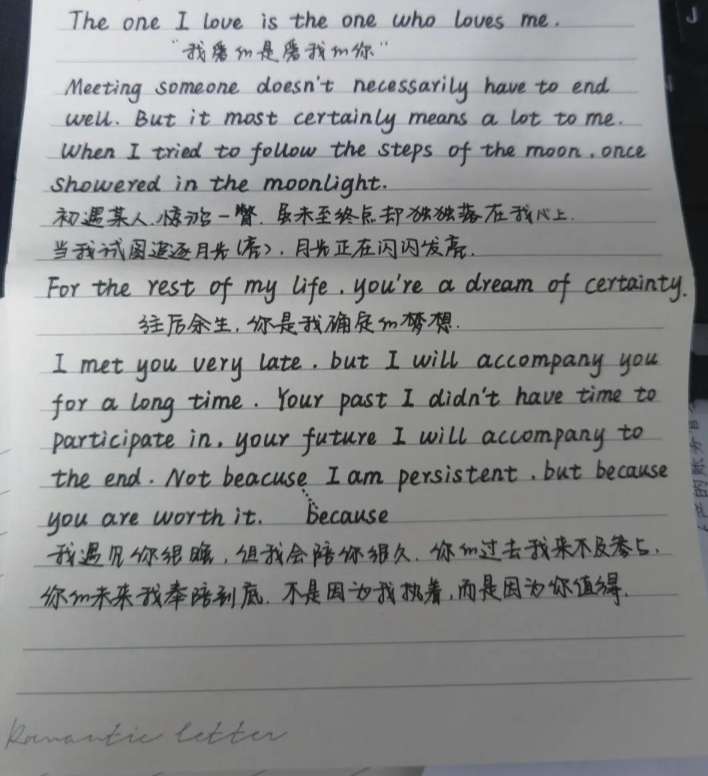 The one I love is the one who loves me.
"我爱的是爱我的你"
Meeting someone doesn't necessarily have to end
well. But it most certainly means a lot to me.
When I tried to follow the steps of the moon, once
showered in the moonlight.
初遇某人,惊鸿一瞥,虽未至终点却独独落在我心上.
当我试图追逐月光(亮),月光正在闪闪发亮.
For the rest of my life, you're a dream of certainty.
往后余生,你是我确定的梦想.
I met you very late, but I will accompany you
for a long time. Your past I didn't have time to
participate in, your future I will accompany to
the end. Not beacuse I am persistent, but because
you are worth it. because
我遇见你很晚,但我会陪你很久.你的过去我来不及参与,
你的未来我奉陪到底.不是因为我执着,而是因为你值得.
Romantic letter